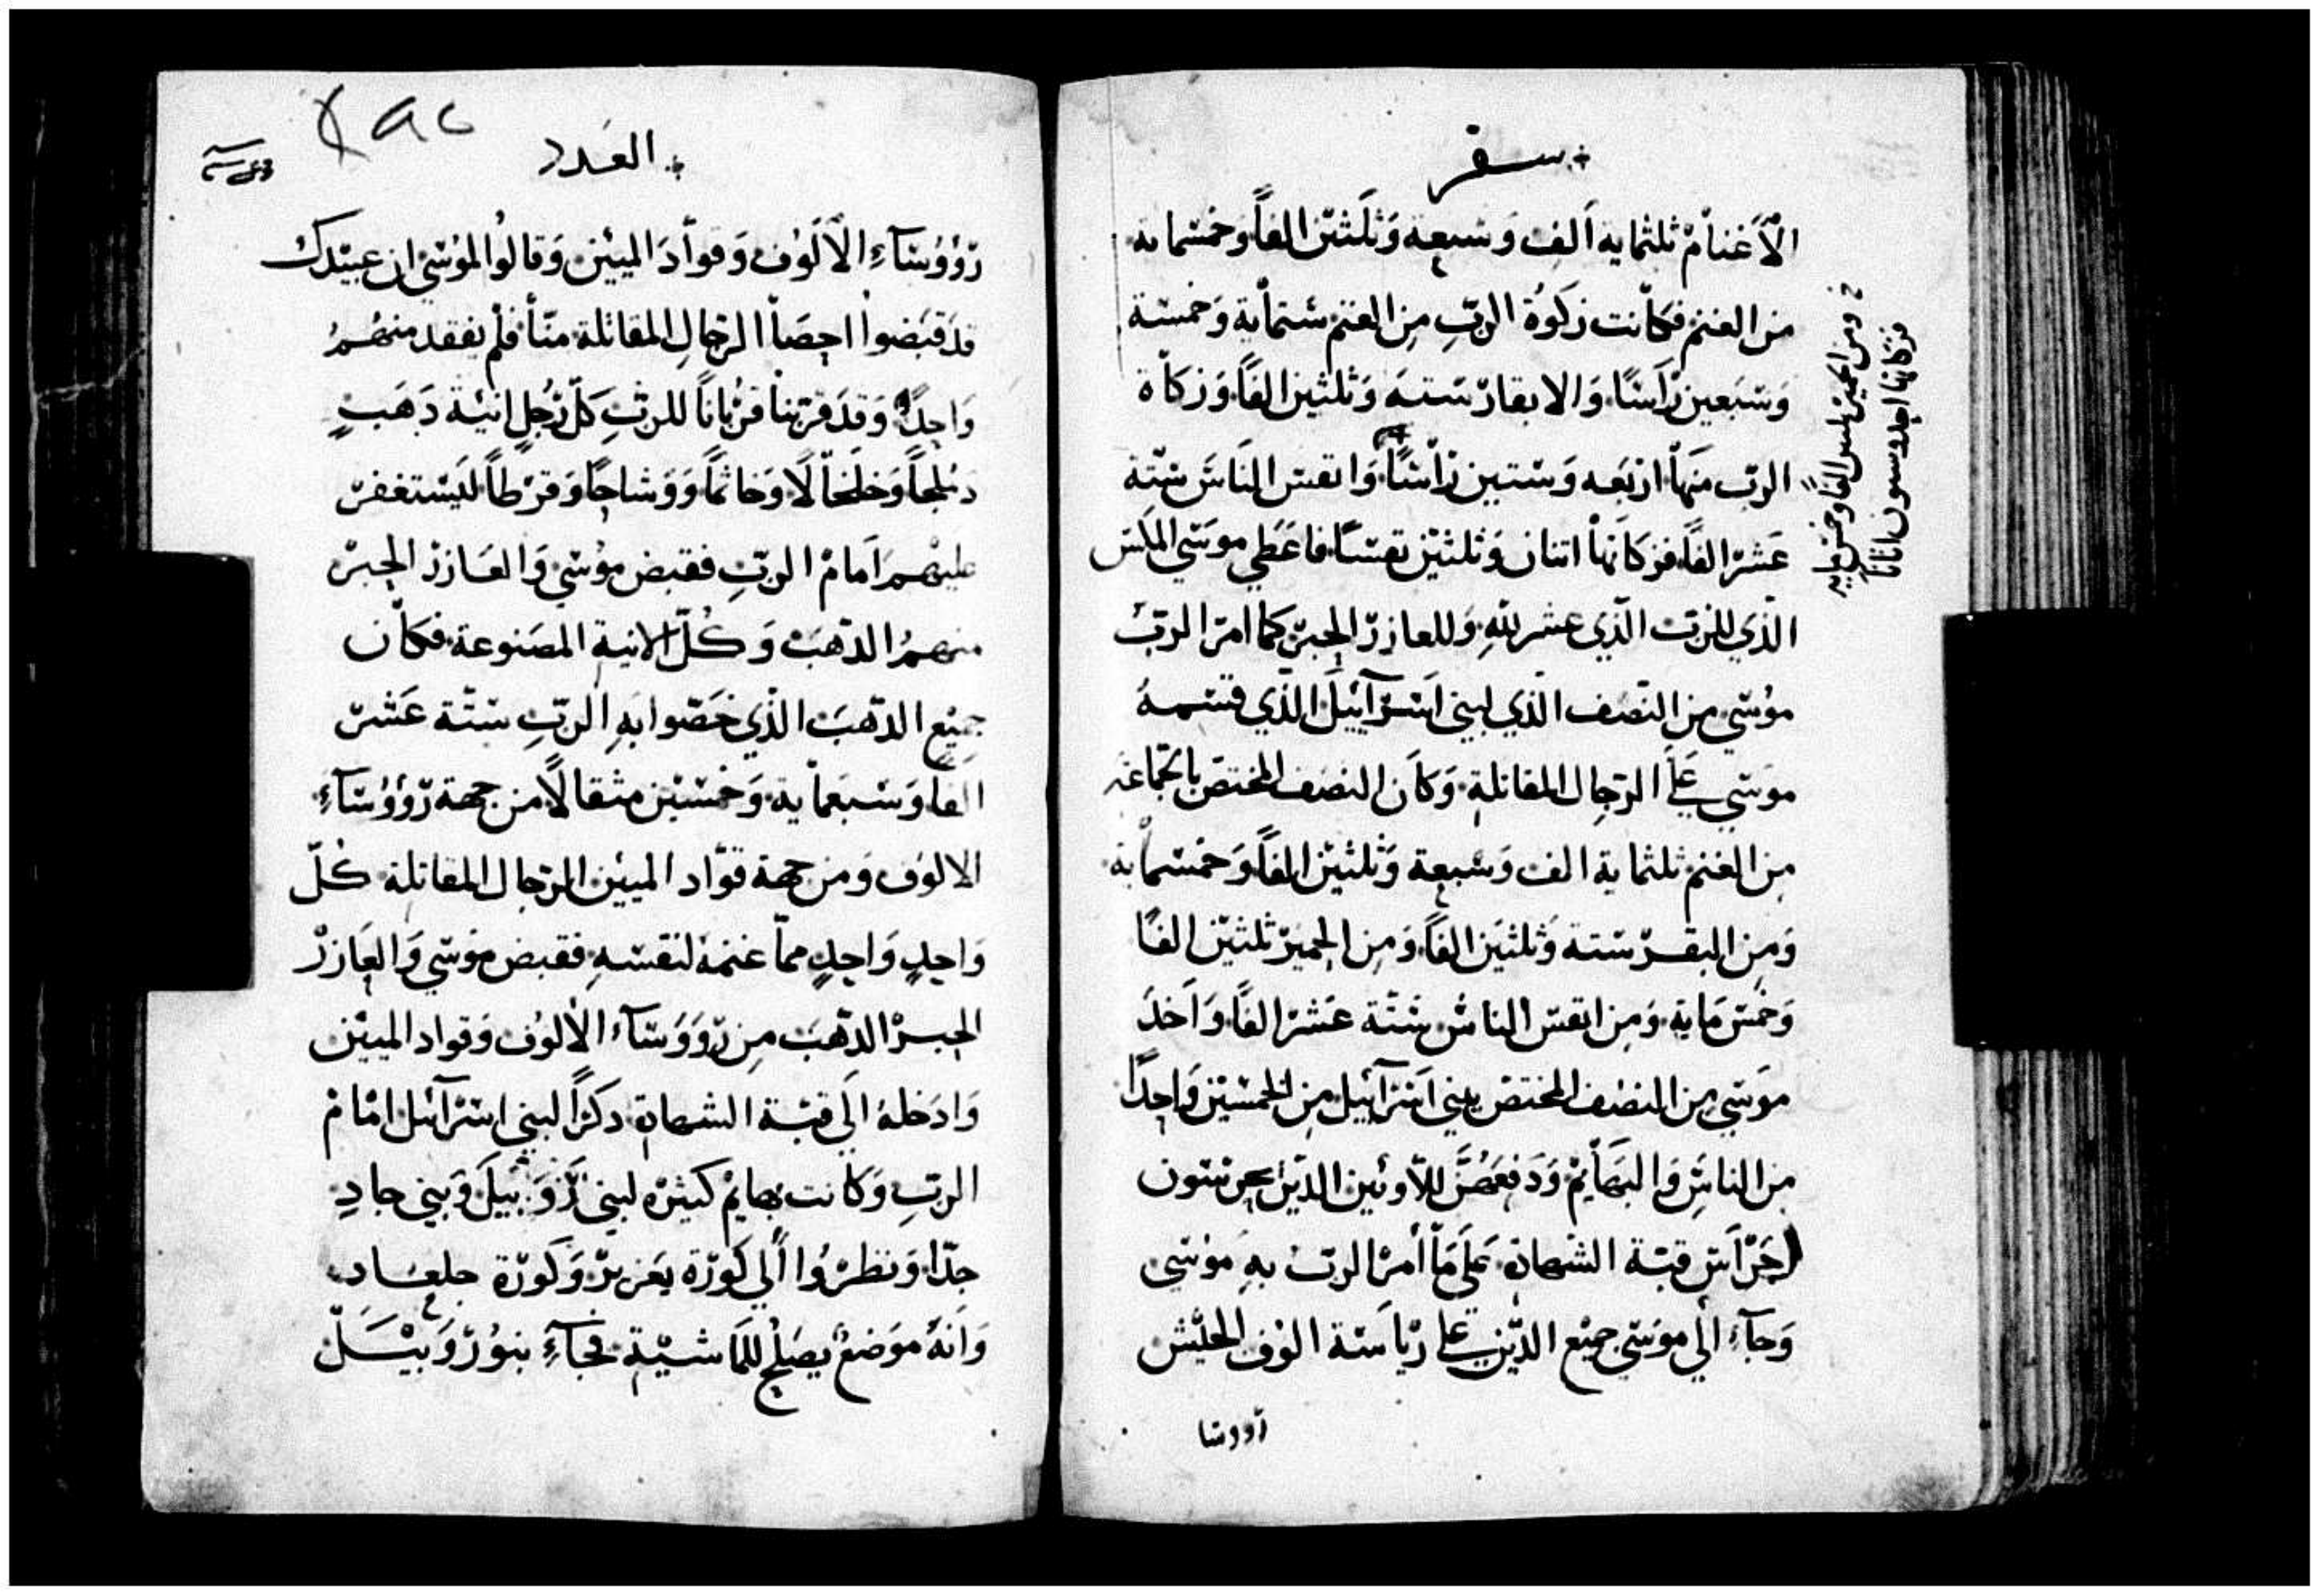 سفر
الاَغنامْ ثلثماية اَلف وَسَبعة وَثلَثيْن الفاً وَخمسْماية
من الغنم فكاَنت زكوٰة الربِّ مِن الغنم ستماية وَخمسْة
وَسَبعين رَاسًا وَالابقار سَتة وَثلثين الفاً وَزكاة
الربّ منهاْ اربَعه وَستين رْاسًا وَانفس الناَسَ سَتة
عَشرْ الفاً فزكاتهاْ اتنان وَثلثيْن نفسًا فاعَطي موسَي المكَس
الذي للربّ الذي عشر للّهِ وَللعازرّ الحبرْ كما امرَ الربّ
موُسَي من النصَف الذي لبني اسَرآئيلَ الذي قسَمهُ
موسَي عَلي الرجاِل المقاتلة وَكاَن النصَف المختصَ بالجماعَه
مِن الغنم ثلثماية الف وَسَبعة وَثلثيْن الفاً وَخمسْماية
وَمِن البقرْ سَتة وَثلثيَن الفاً وَمِن الحميرْ ثلثيْن الفاً
وَخمسَ مَاية وَمِن انفسَ الناسُ سَتة عَشرْ الفاً وَاَخدَ
موسَي مِن النصُف المختصَ ببني اسَرآئيل مِن الخمسَيْن وَاحِداً
مِن الناسَ وَالبهَاْيم وَدَفعَهُنَّ للاّوئين الدّين يحرسَون
اجَرْاسَ قبّة الشهادة عَلَي مَاْ اَمرْ الربّ بهِ موُسَي
وَجآءَ الي موسَي جميْع الدّين عَلي ريْاسَة الوُف الجيْش
رووسا
خ ومن الحمير ثلثين الفا وخمس مايه
فزكاتها احد وستون اتانًا
العَدد
رؤوُسَآءِ الاَلَوُف وَقواّدَ الميئن وَقالوُا لموُسَي ان عبيْدك
قدَ قبَضوا احصَاْ الرجاِل المقاتلة منّاْ فلم يفقد منهُمُ
وَاحِداً وَقدَ قرّبنا قرْباناً للربِّ كلّ رَجُلٍ انيْة دَهَبٍ
دملجاً وَخلخاْلاً وَخاتماً وَوَشاحاً وَقرْطاً ليَستغفرْ
عليْهمِ اَمامْ الربِّ فقبض موُسَي وَالعَازرْ الحِبرْ
منهمُ الدّهبَ وَكُلّ الانية المصَنوعة فكاّن
جميْع الدّهبَ الذي خصَّوا بهِ الربّ سَتة عَشرْ
الفا وَسَبعماْية وَخمسَيْن مثقالاً من جهة رّؤوُسَآءِ
الالوُف وَمن جهة قوّاد الميين الرجال المقاتلة كُلّ
وَاحِدٍ وَاحِدٍ مماّ غنمهُ لنفسَهِ فقبض موُسَي وَالعَازرْ
الحِبرْ الدّهبَ مِن رّووَسَآء الاْلوُف وَقواد الميئين
وَادخلهُ الَي قبّة الشهادة دكرًا لبني اسَرْآئل امْامْ
الربِّ وَكاَنت بهايْم كثيْرْه لبني رّوَبيلَ وَبني جادِ
جدّا وَنظرْوُا اْلي كورْة يعَزيرْ وَكورّة جلعَاد
وَانهُ موَضعْ يصَلح للمَاشيّة فجآءَ بنوُ رّوَبيْسَلّ